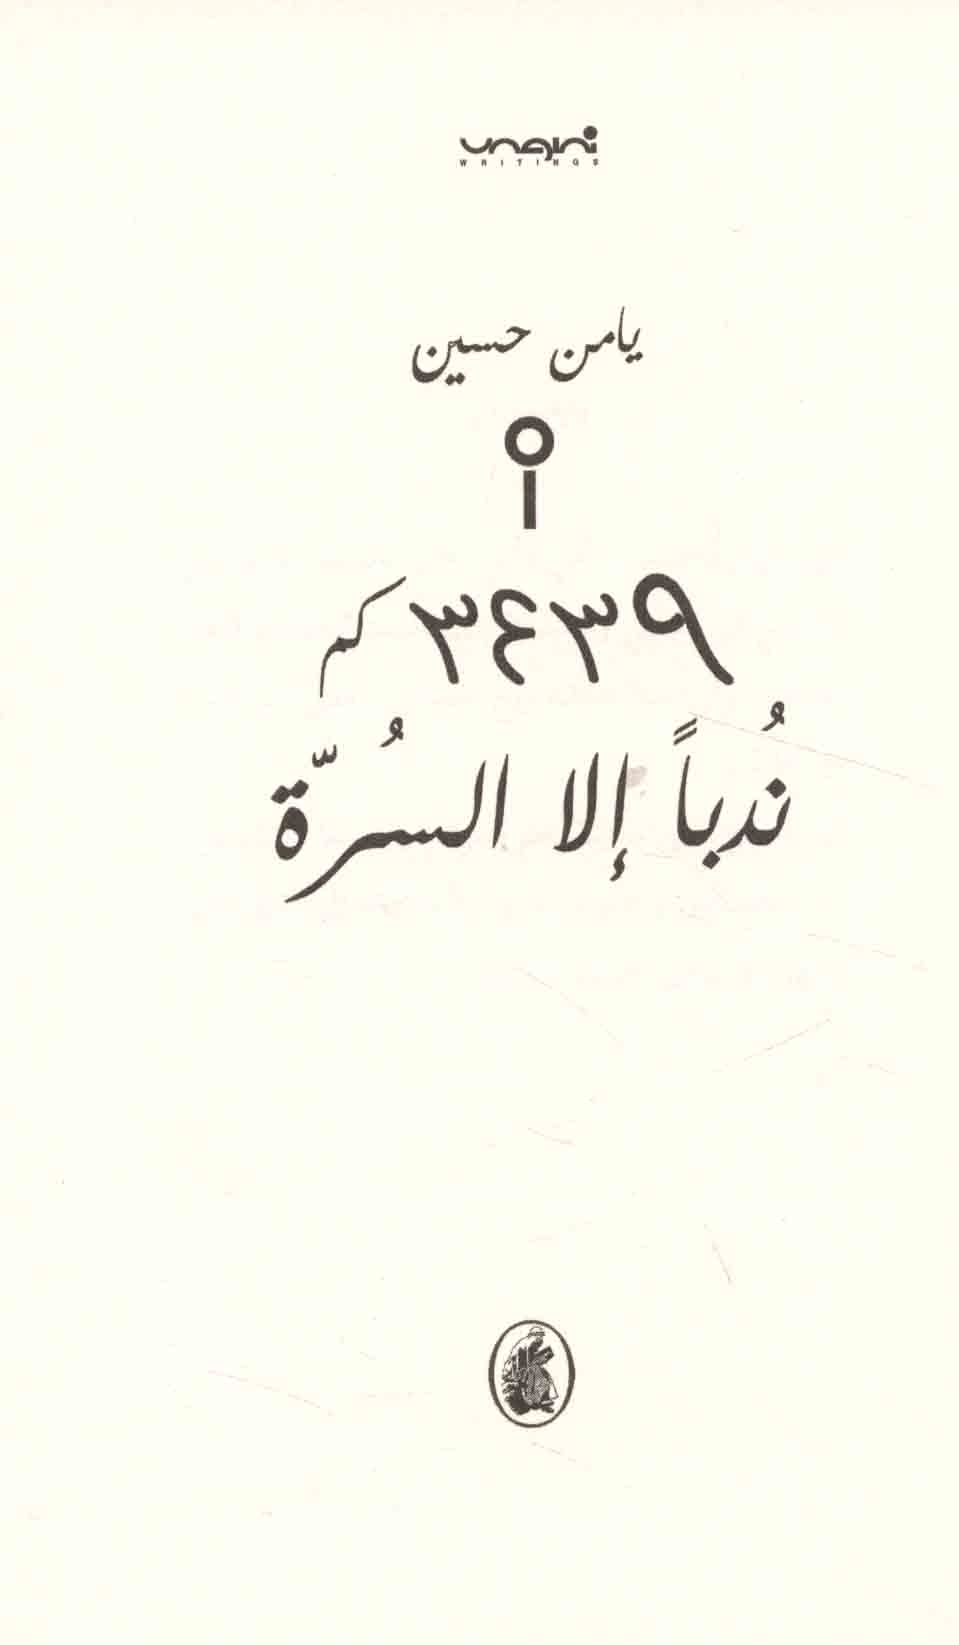 WRITINGS
يامن حسين
٣٤٣٩ كم
نُدباً إلا السُرّة